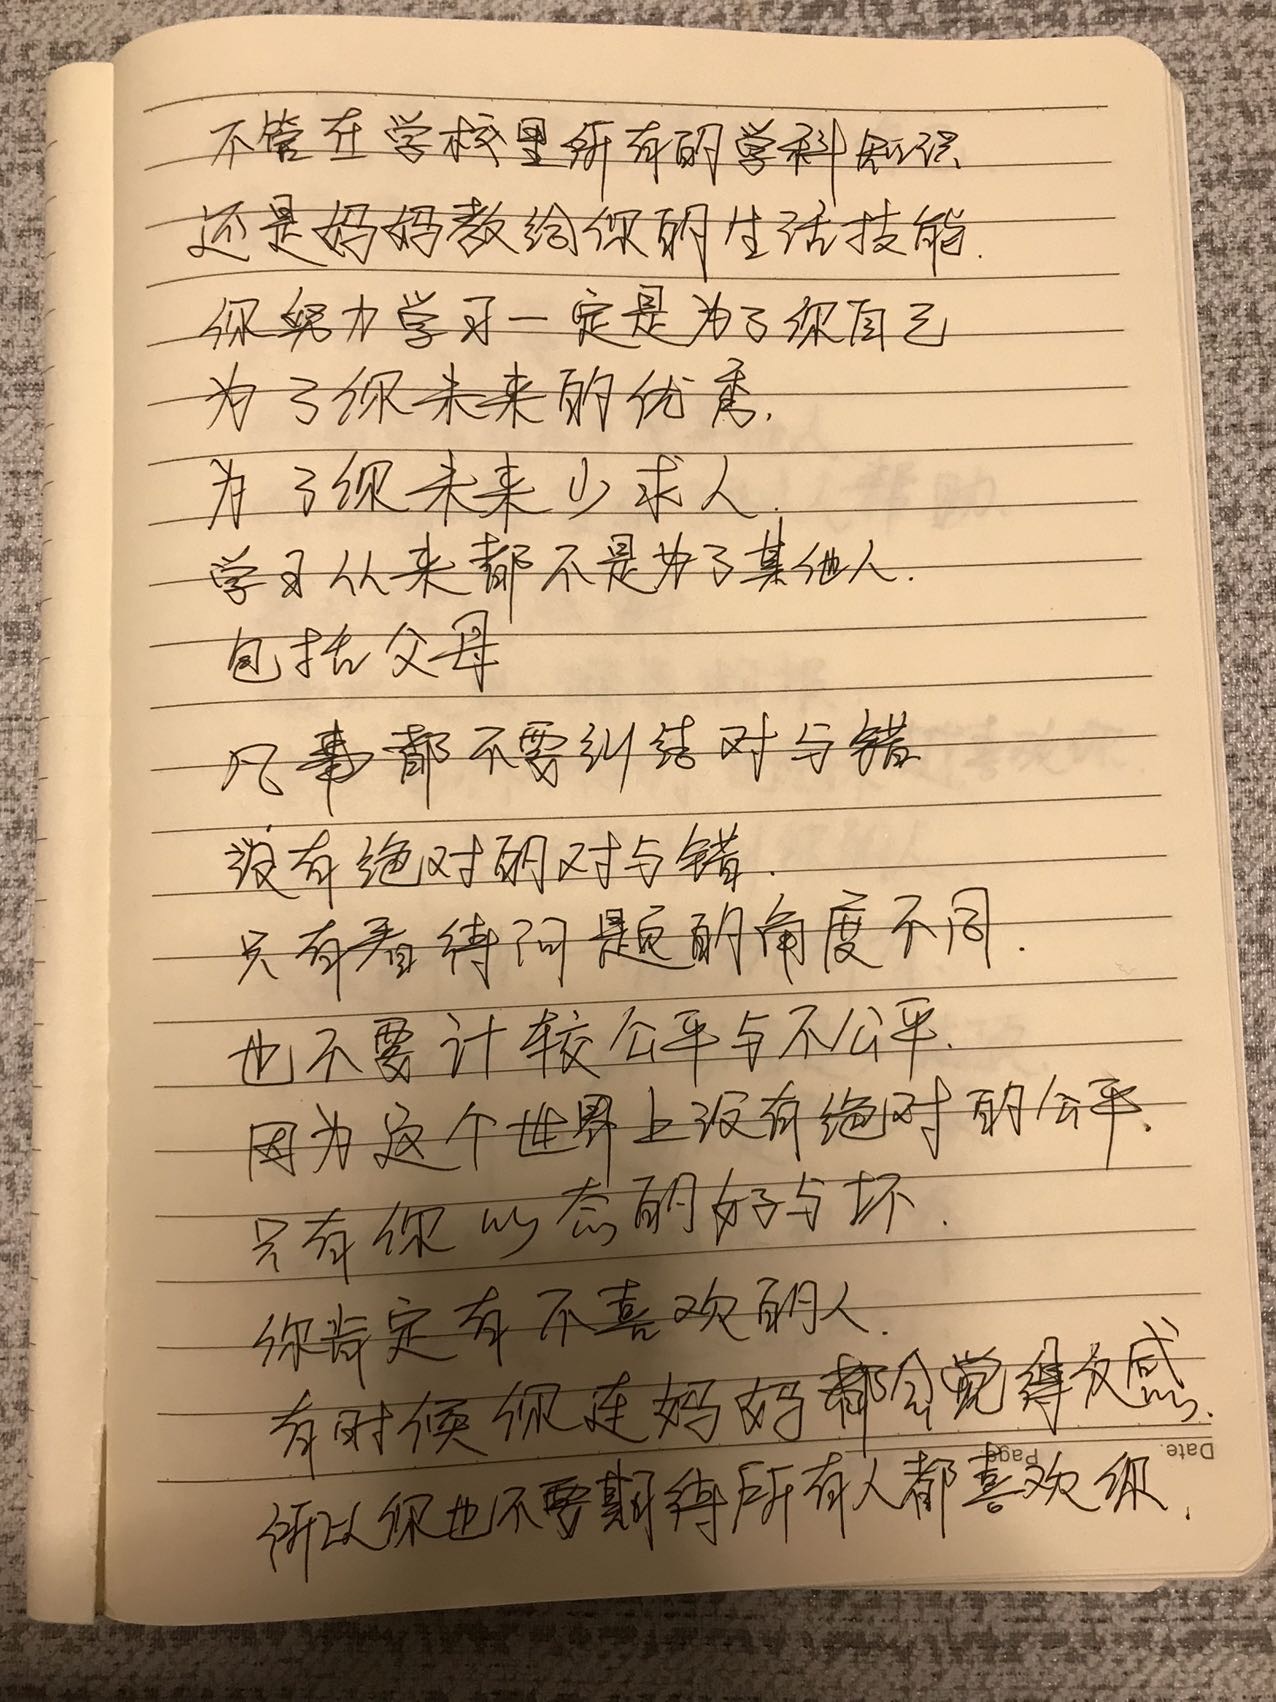 不管在学校里所有的学科知识
还是妈妈教给你的生活技能.
你努力学习一定是为了你自己
为了你未来的优秀.
为了你未来少求人.
学习从来都不是为了其他人.
包括父母
凡事都不要纠结对与错
没有绝对的对与错.
只有看待问题的角度不同.
也不要计较公平与不公平.
因为这个世界上没有绝对的公平.
只有你心态的好与坏.
你肯定有不喜欢的人.
有时候你连妈妈都会觉得反感.
Date.
Page
所以你也不要期待所有人都喜欢你.